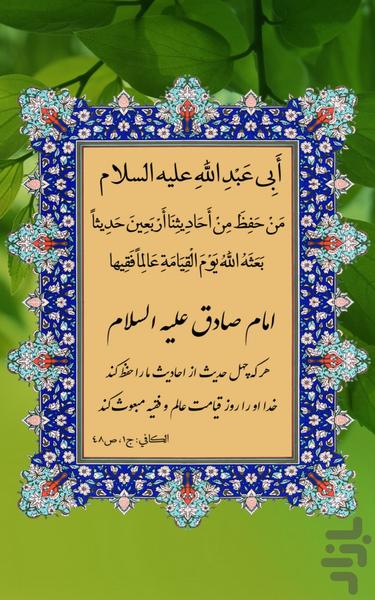 أَبِي عَبْدِ اللهِ عليه السلام
مَنْ حَفِظَ مِنْ أَحَادِيثِنَا أَرْبَعِينَ حَدِيثاً
بَعَثَهُ اللهُ يَوْمَ الْقِيَامَةِ عَالِماً فَقِيها
امام صادق علیه السلام
هر که چهل حدیث از احادیث ما را حفظ کند
خدا او را روز قیامت عالم و فقیه مبعوث کند
الكافي: ج۱، ص۴۸
بازار